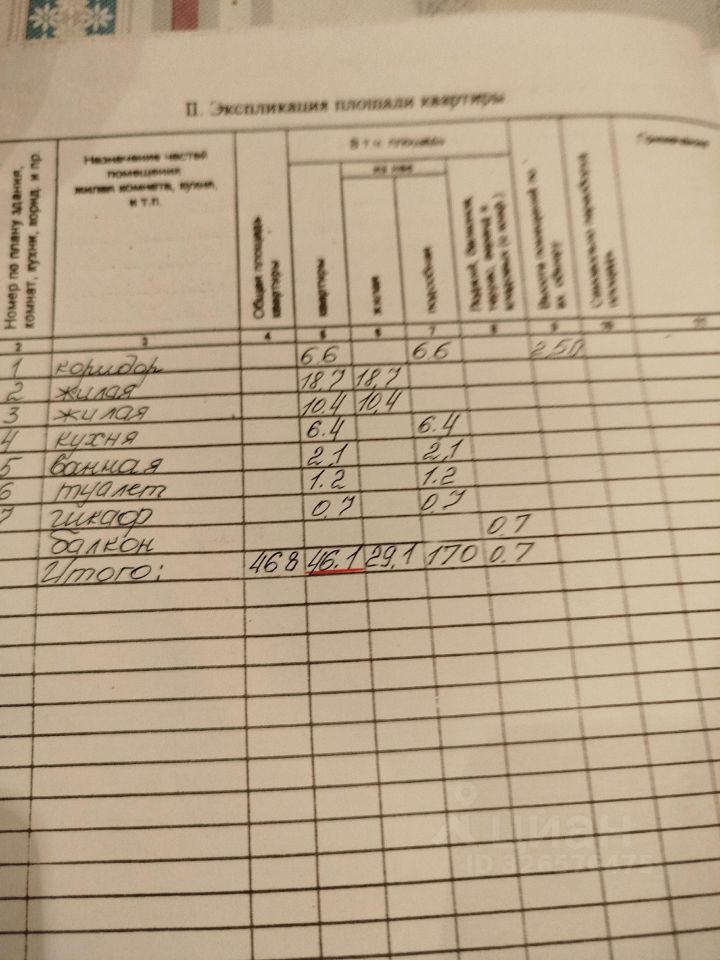 II. Экспликация площади квартиры
Номер по плану здания, комнат, кухни, корид. и пр.
Назначение частей помещения жилая комната, кухня, и т.п.
Общая площадь квартиры
В т.ч. площадь
из нее
квартиры
жилая
подсобная
Высота помещений по их обмеру
площадь
2 3 4 5 6 7 8 9 10 11
1 коридор 6.6 6.6 2.50
2 жилая 18,7 18,7
3 жилая 10,4 10,4
4 кухня 6.4 6.4
5 ванная 2,1 2,1
6 туалет 1.2 1.2
7 шкаф 0,7 0,7
балкон 0.7
Итого: 468 46.1 29,1 170 0.7
циан